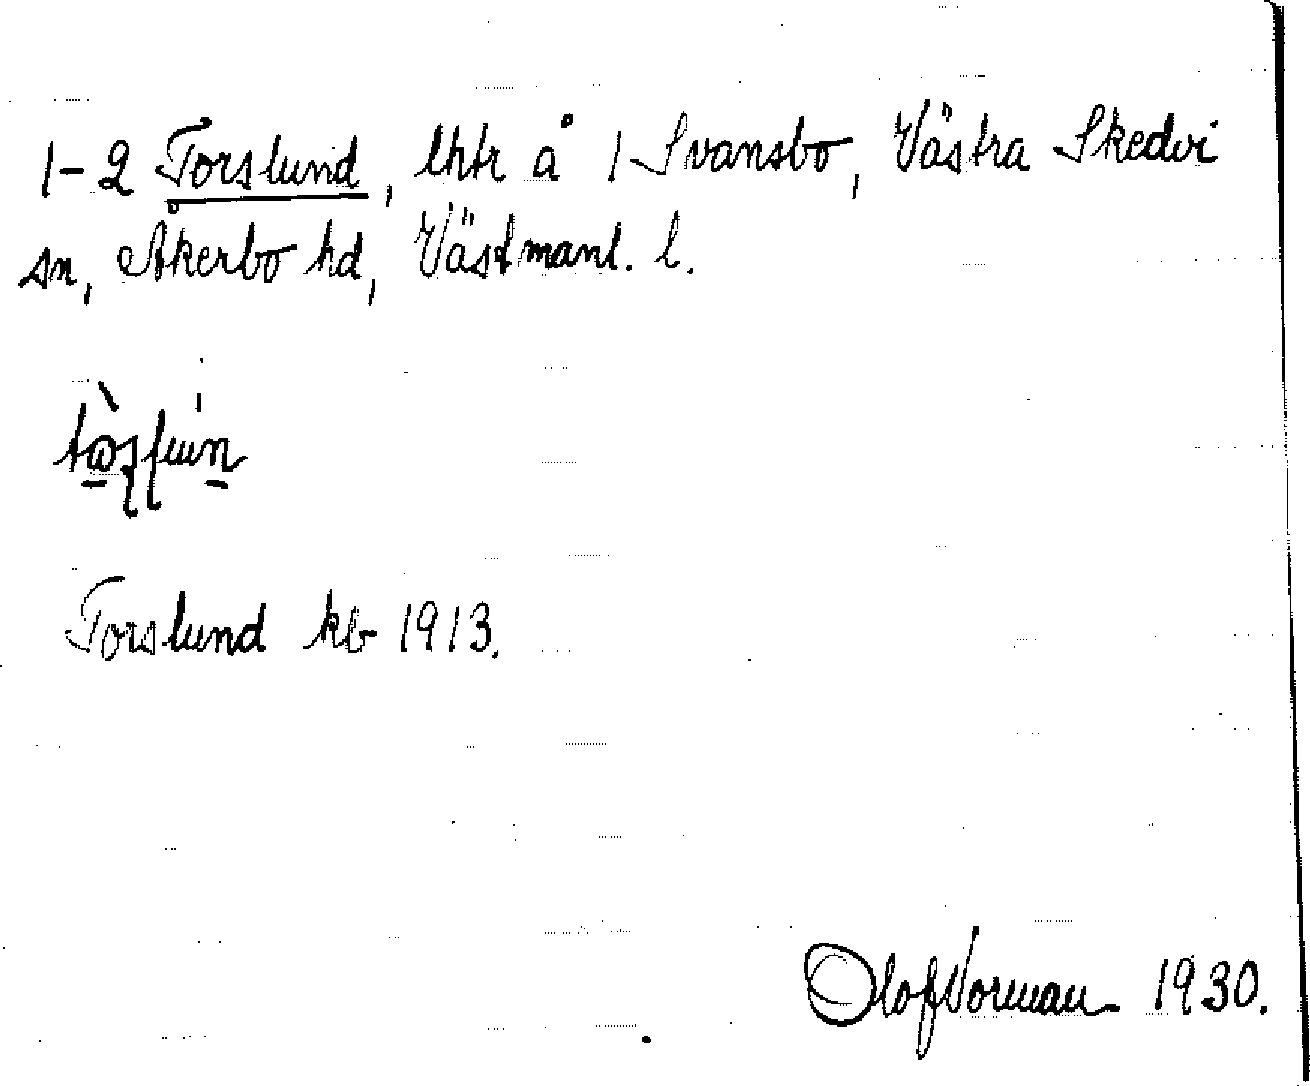 1-2 Torslund, lhtr å 1 Svansbo, Västra Skedvi
sn, Åkerbo hd, Västmanl. l.
Torslund kb 1913.
Olof Vorman 1930.